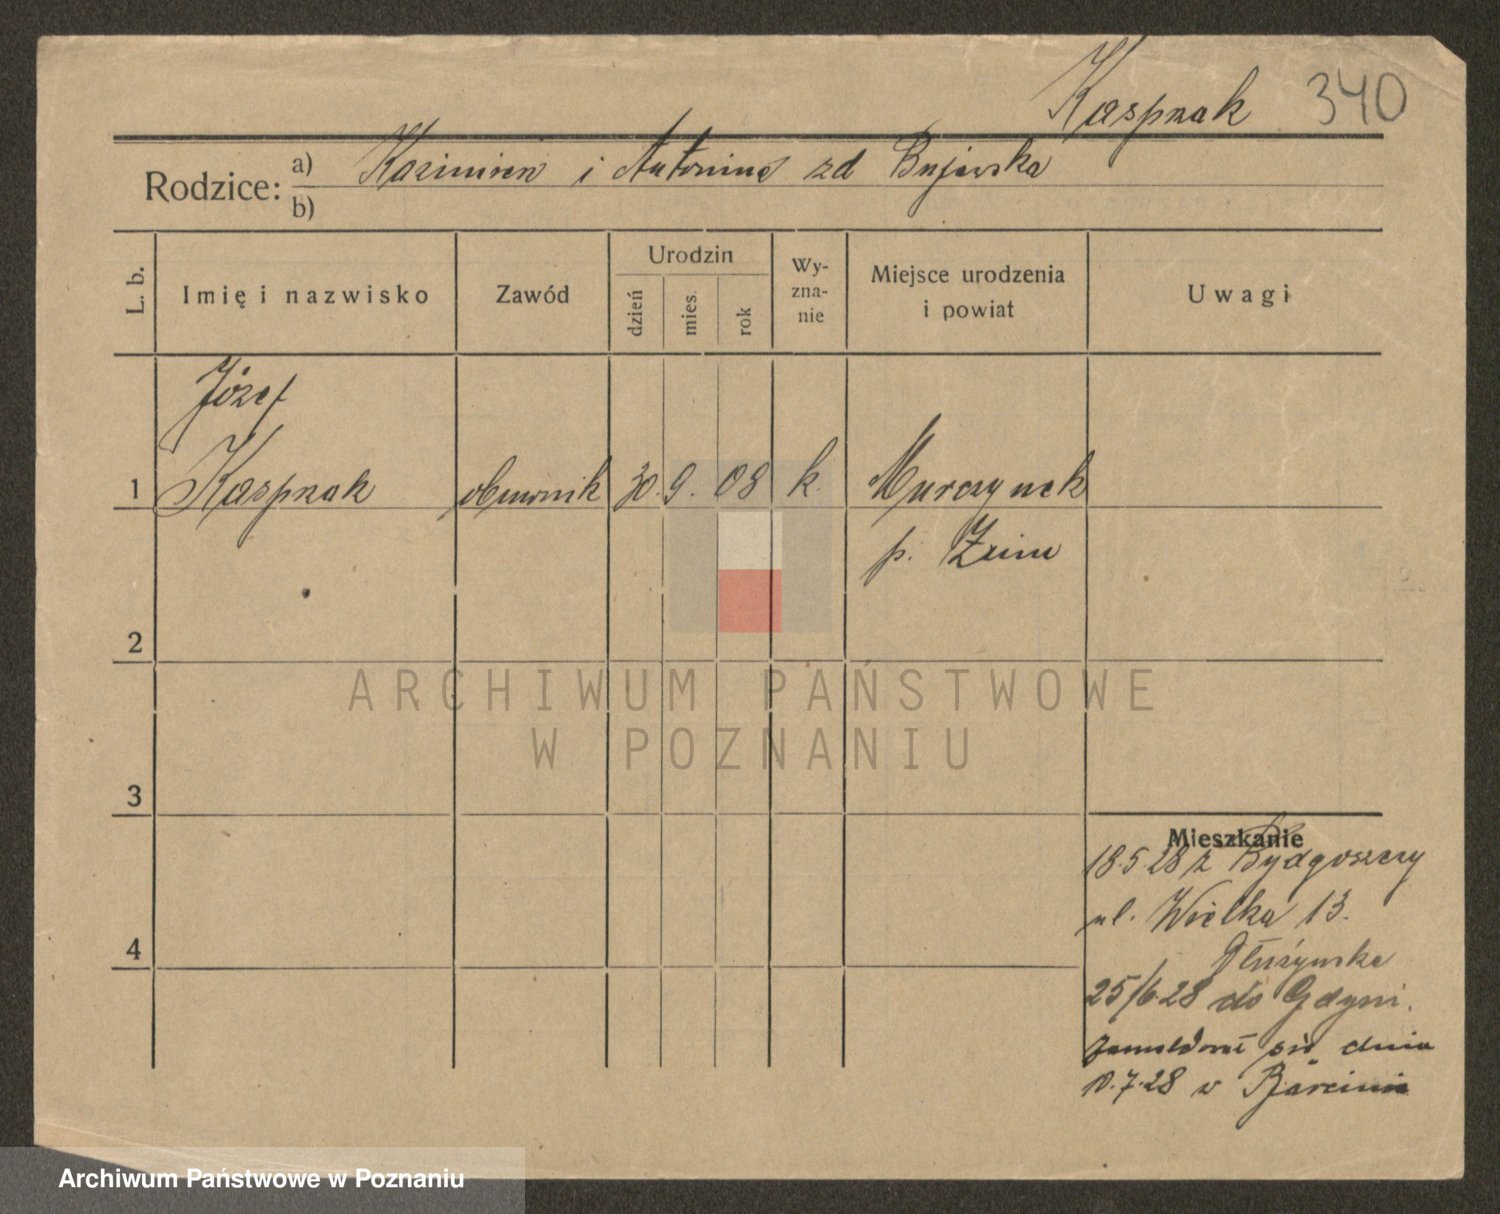 Kasprzak 340
Rodzice: a) Kazimierz i Antonina zd Bujewska
b)
L. b. Imię i nazwisko Zawód Urodzin dzień mies. rok Wy-zna-nie Miejsce urodzenia i powiat Uwagi
Józef
1 Kasprzak obuwnik 30. 9. 08 k. Murczynek
p. Żnin
2
ARCHIWUM PAŃSTWOWE
W POZNANIU
3
Mieszkanie
18.5.28 z Bydgoszczy
ul. Wielka 13.
4
25/6.28 do Gdyni.
zameldował się dnia
10.7.28 w Barcinie
Archiwum Państwowe w Poznaniu